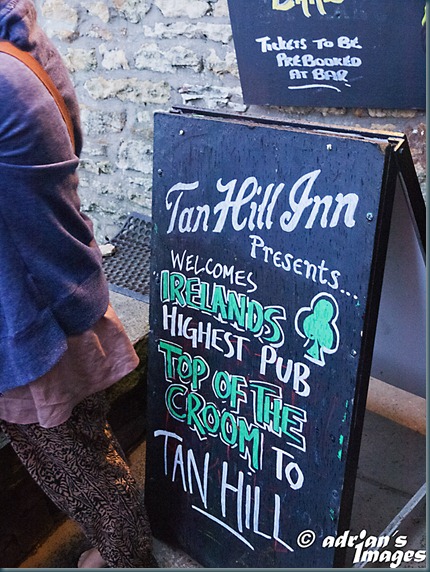 TICKETS TO BE
PREBOOKED
AT BAR
Tan Hill Inn
Presents...
WELCOMES
IRELANDS
HIGHEST PUB
TOP OF THE
CROOM TO
TAN HILL
© adrian's
Images